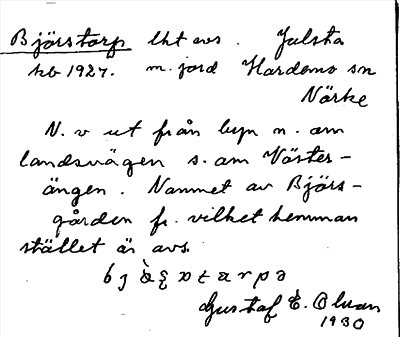 Björstorp lht avs. Jalsta
kb 1927. m. jord Hardemo sn
Närke
N. v ut från byn n. om
landsvägen s. om Väster-
ängen. Namnet av Björs-
gården fr. vilket hemman
stället är avs.
Gustaf E. Olsson
1930